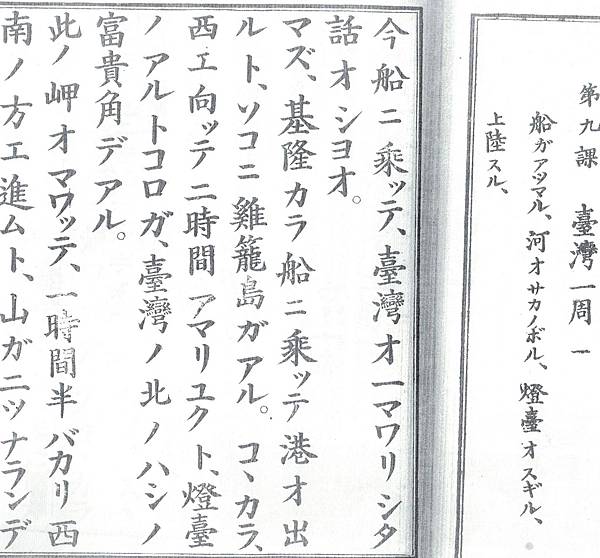 第九課　臺灣一周一
船ガアツマル、河オサカノボル、燈臺オスギル、
上陸スル、
今船ニ乘ッテ、臺灣オ一マワリシタ
話オシヨオ。
マズ、基隆カラ船ニ乘ッテ港オ出
ルト、ソコニ雞籠島ガアル。コヽカラ、
西エ向ッテ二時間アマリユクト、燈臺
ノアルトコロガ、臺灣ノ北ノハシノ
富貴角デアル。
此ノ岬オマワッテ、一時間半バカリ西
南ノ方エ進ムト、山ガ二ツナランデ